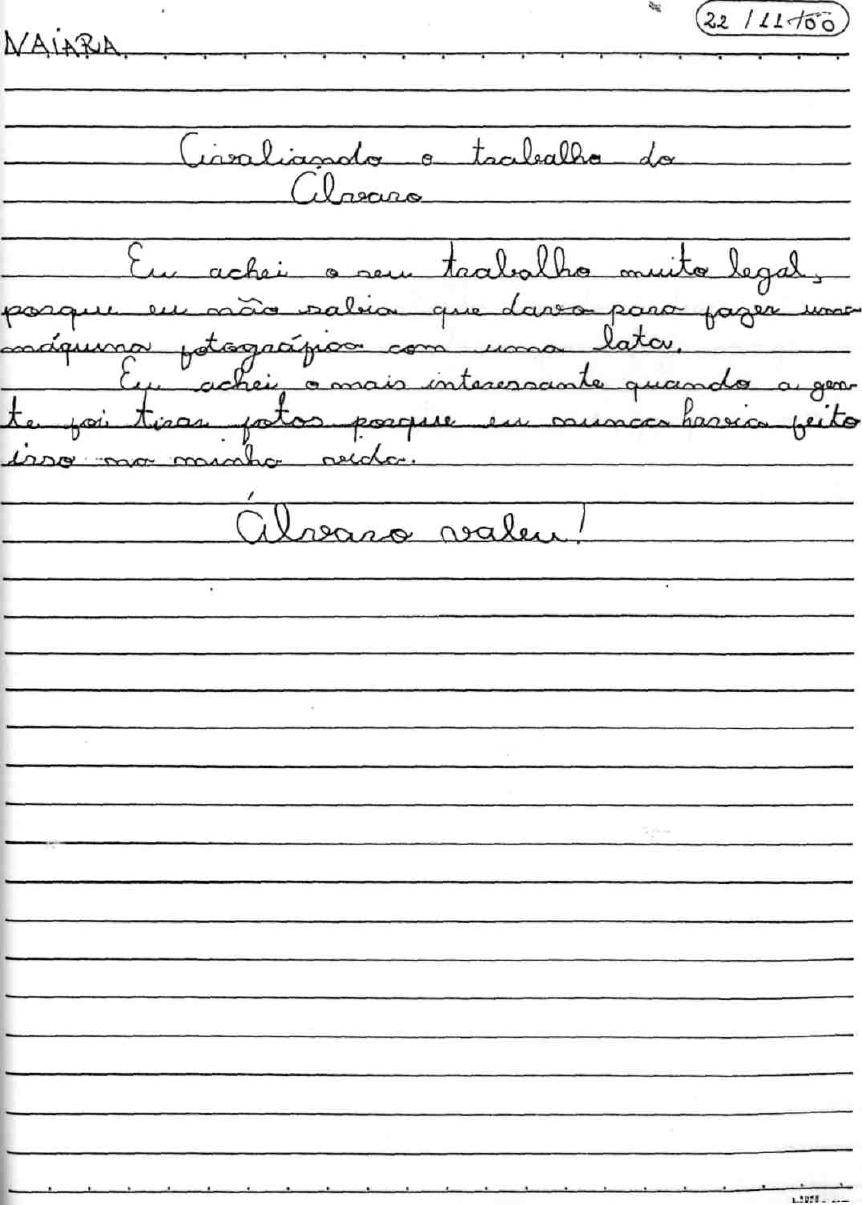 22/11/00
NAIARA
Avaliando o trabalho do
Álvaro
Eu achei o seu trabalho muito legal,
porque eu não sabia que dava para fazer uma
máquina fotográfica com uma lata.
Eu achei o mais interessante quando a gen-
te foi tirar fotos porque eu nunca havia feito
isso na minha vida.
Álvaro valeu!